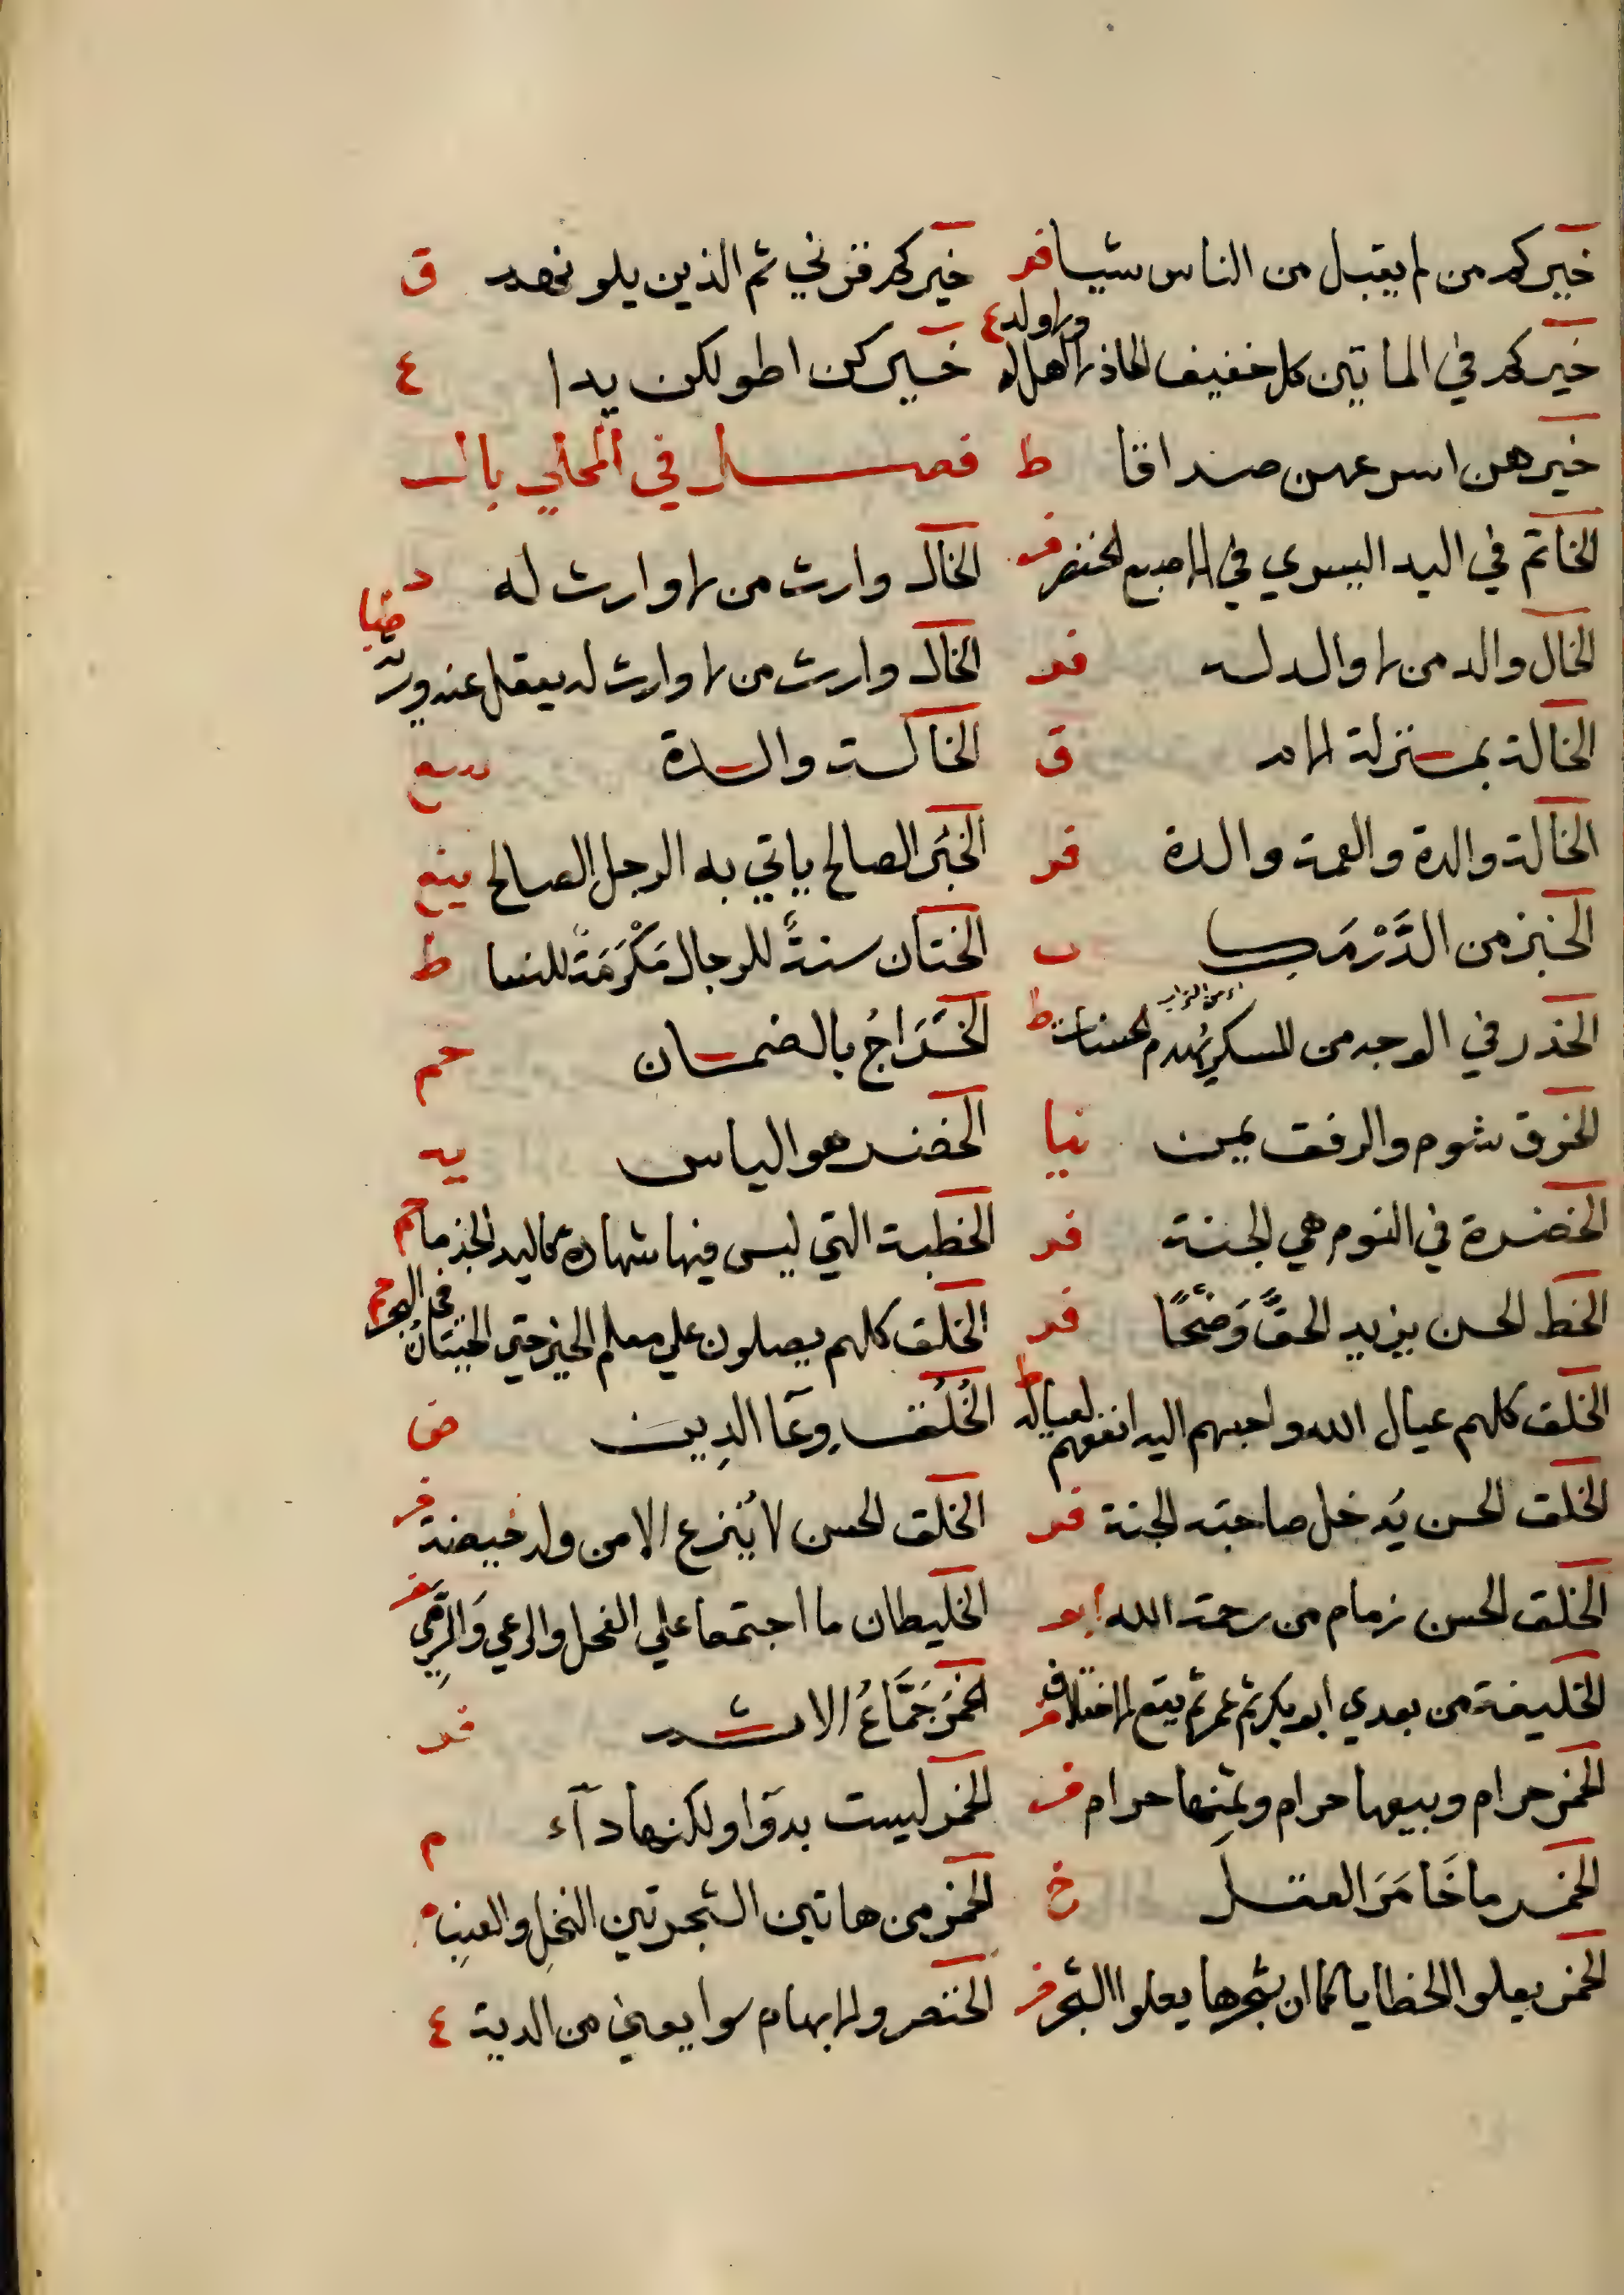 خيركم من لم يقبل من الناس شيا فر خيركم قرني ثم الذين يلونهم ق
خيركم في الماتين كل خفيف الحاذ لا اهل له ولا ولد ع خيركن اطولكن يدا ع
خيرهن اسرعهن صداقا ط فصل في المحلي بال
الخاتم في اليد اليسري في الاصبع الخنصر فر الخال وارث من لا وارث له د
الخال والد من لا والد له فر الخال وارث من لا وارث له يعقل عنه ويرثه ضيا
الخالة بمنزلة الام ق الخالة والدة سع
الخالة والدة والعمة والدة فر الخبر الصالح ياتي به الرجل الصالح ينع
الخبز من الدَّرْمَك ت الختان سنةٌ للرجال مَكْرَمَةً للنسا ط
الخدر في الوجه من السكر يهدم الحسنات ط الخَرَاجُ بالضمان حم
الخرق شوم والرفق يمن نيا الخضر هو الياس يه
الخضرة في النوم هي الجنة فر الخطبة التي ليس فيها شهادة كاليد الجذما حم
الخط الحسن يزيد الحقَّ وَضَحًا فر الخلق كلهم يصلون علي معلم الخير حتي الحيتان في البحر
الخلق كلهم عيال الله واحبهم اليه انفعهم لعياله ط الخُلُق وِعَآ الدِين ض
الخلق الحسن يُدخل صاحبَه الجنة فر الخلق الحسن لا يُنزع الا من ولد حيضة فر
الخلق الحسن زمام من رحمة الله ابو الخليطان ما اجتمعا علي الفحل والرعي وَالرَّمي
الخليفة من بعدي ابو بكر ثم عمر ثم يقع الاختلاف فر الخمر جَمَّاعُ الاثم فر
الخمر حرام وبيعها حرام وثمنها حرام فر الخمر ليست بدَوَا ولكنها دآء م
الخمر ما خَامَرَ العقل خ الخمر من هاتين الشجرتين النخلِ والعنبِ م
الخمر يعلوا الخطايا كما ان شجرها يعلوا الشجر فر الخنصر والابهام سوا يعني من الدية ع